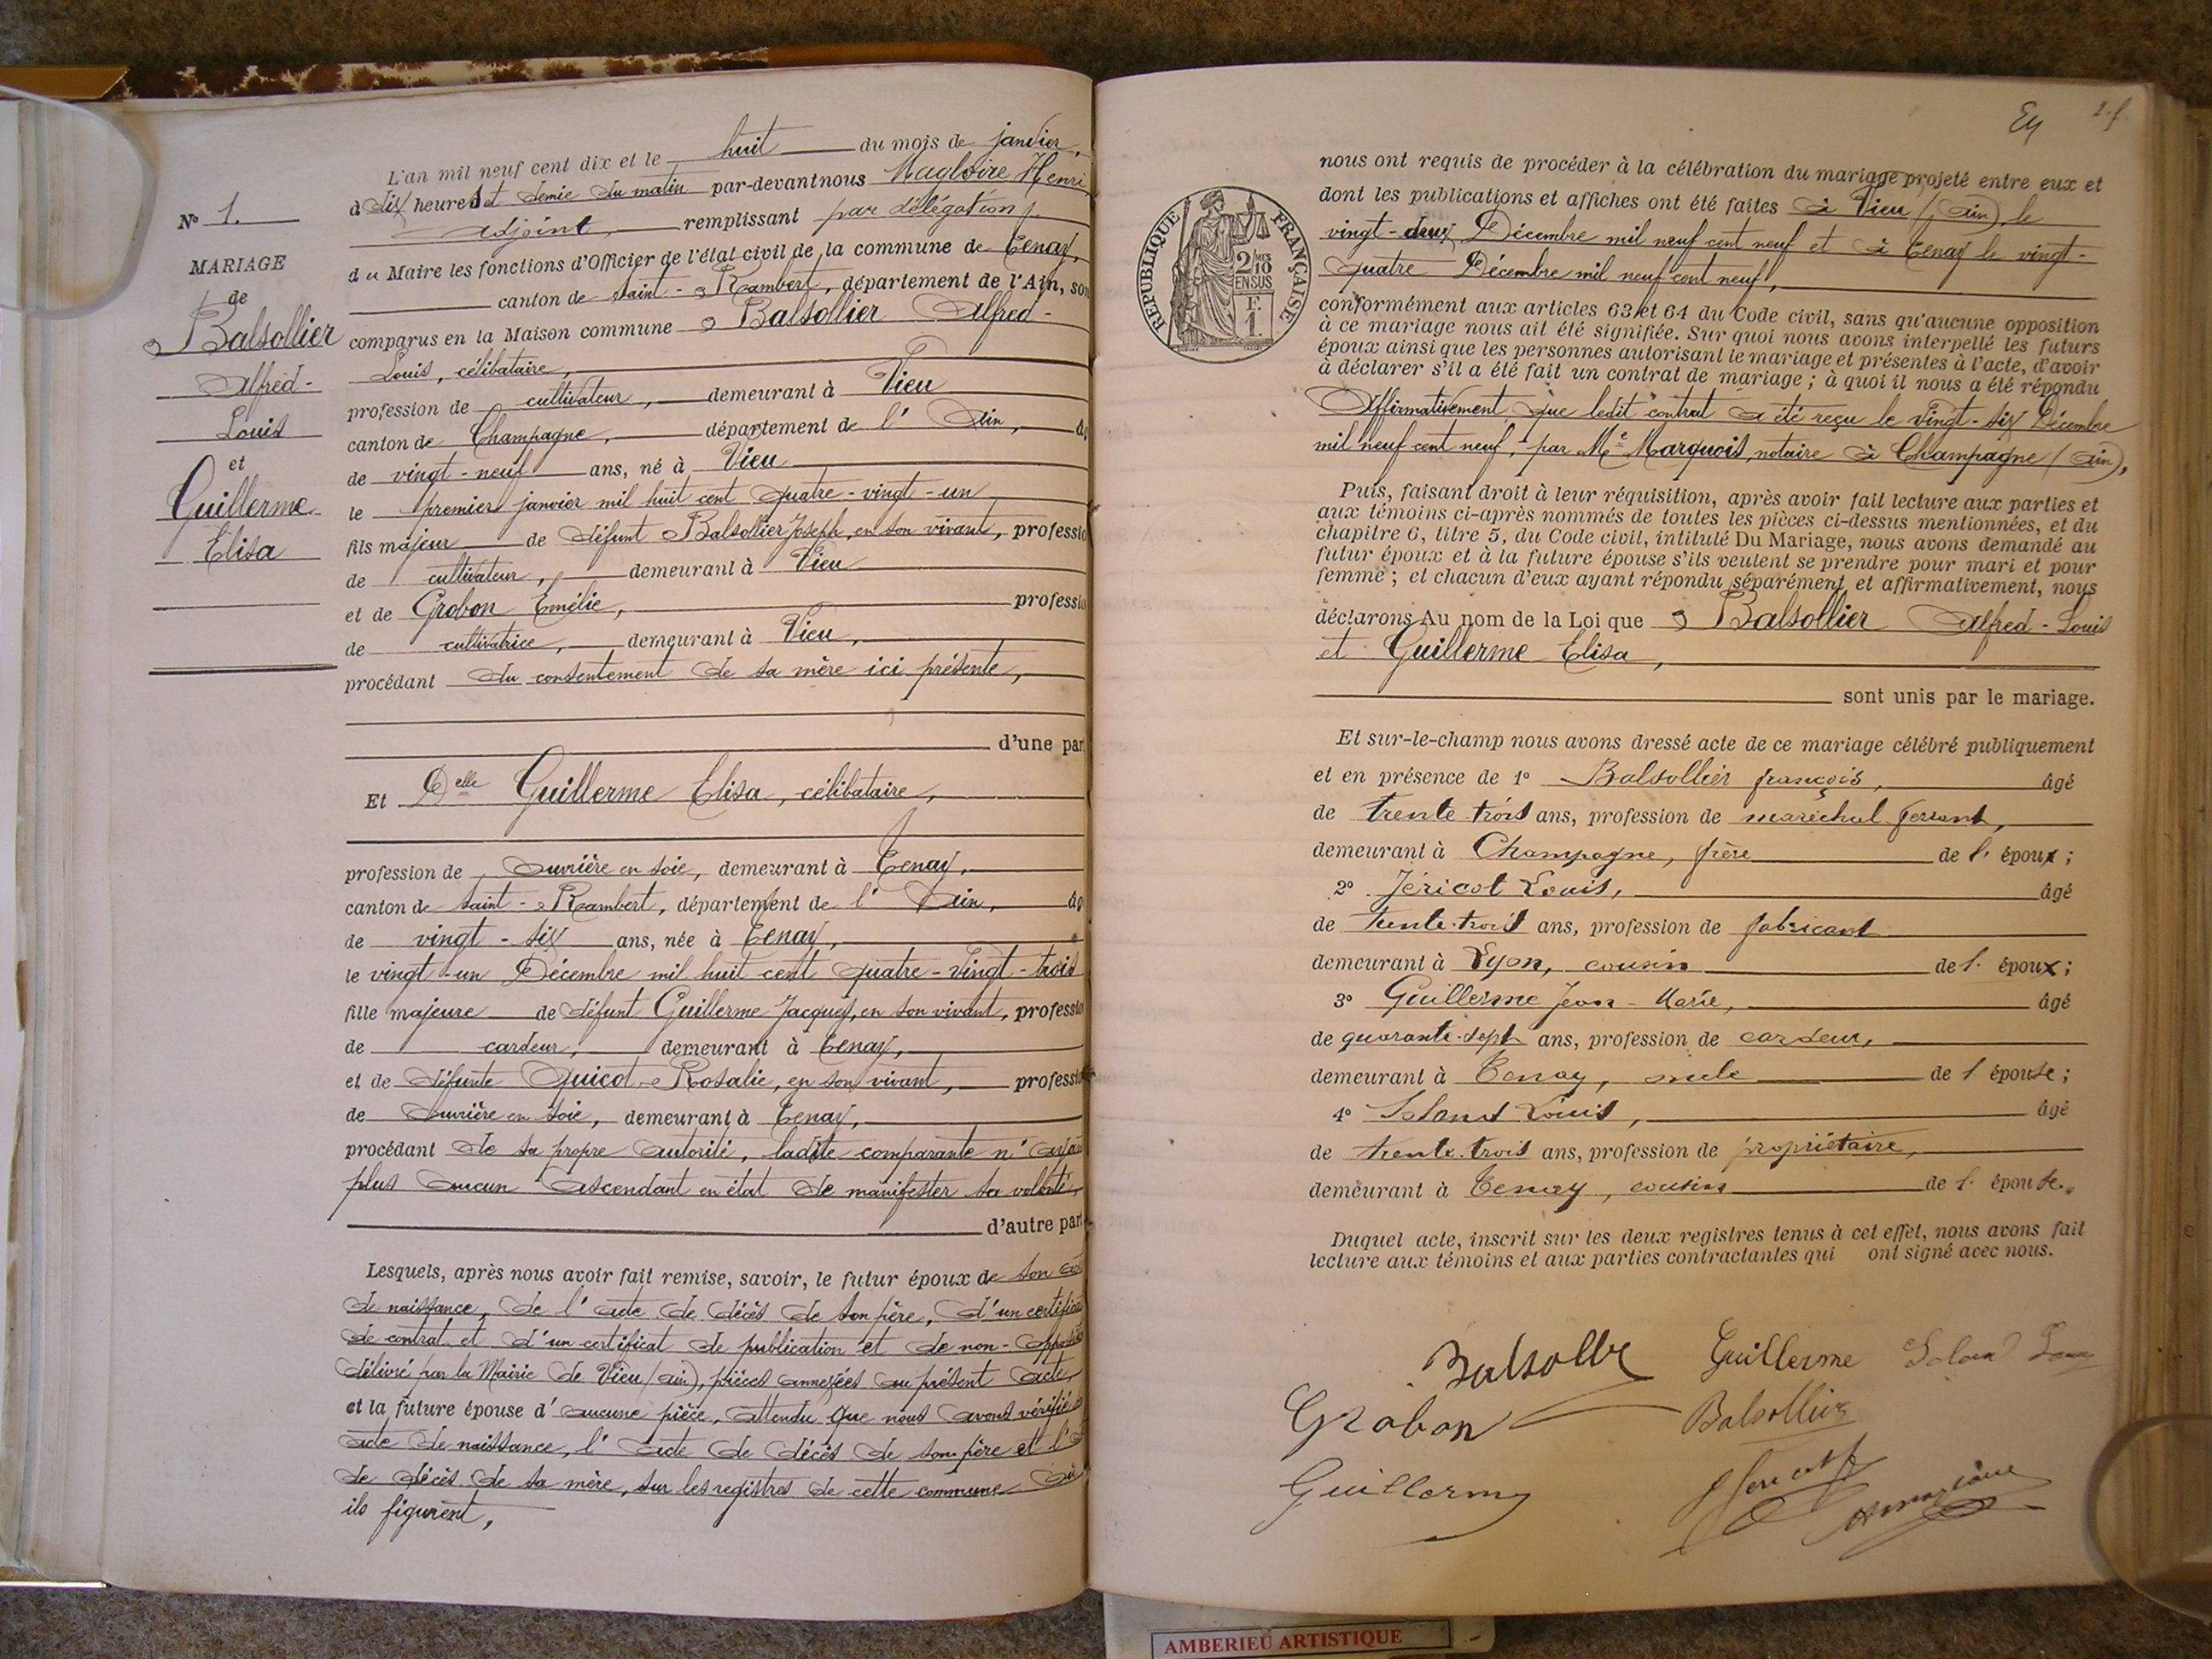 L'an mil neuf cent dix et le huit du mois de janvier,
à dix heures et demie du matin par-devant nous Magloire Henri,
adjoint, remplissant par délégation
du Maire les fonctions d'Officier de l'état civil de la commune de Tenay,
canton de Saint-Rambert, département de l'Ain, son
comparus en la Maison commune Balsollier Alfred-
Louis, célibataire,
profession de cultivateur, demeurant à Vieu
canton de Champagne, département de l'Ain, âg
de vingt-neuf ans, né à Vieu
le premier janvier mil huit cent quatre-vingt-un
fils majeur de défunt Balsollier Joseph, en son vivant, professio
de cultivateur, demeurant à Vieu
et de Grobon Emélie, professio
de cultivatrice, demeurant à Vieu,
procédant du consentement de sa mère ici présente,
d'une par
Et Delle Guillerme Elisa, célibataire,
profession de ouvrière en soie, demeurant à Tenay,
canton de Saint-Rambert, département de l'Ain, âg
de vingt-six ans, née à Tenay,
le vingt-un Décembre mil huit cent quatre-vingt-trois
fille majeure de défunt Guillerme Jacques, en son vivant, professio
de cardeur, demeurant à Tenay,
et de défunte Quicot Rosalie, en son vivant, professio
de ouvrière en soie, demeurant à Tenay,
procédant de sa propre autorité, ladite comparante n'
plus aucun ascendant en état de manifester sa volonté,
d'autre part
Lesquels, après nous avoir fait remise, savoir, le futur époux de son
de naissance, de l'acte de décès de son père, d'un certificat
de contrat et d'un certificat de publication et de non-
délivré par la Mairie de Vieu (ain), pièces annexées au présent acte,
et la future épouse d'aucune pièce, attendu que nous avons vérifié
acte de naissance, l'acte de décès de son père et l'
de décès de sa mère, sur les registres de cette commune où
ils figurent,
N° 1.
MARIAGE
de
Balsollier
Alfred-
Louis
et
Guillerme
Elisa
nous ont requis de procéder à la célébration du mariage projeté entre eux et
dont les publications et affiches ont été faites à Vieu (ain), le
vingt-deux Décembre mil neuf cent neuf et à Tenay le vingt-
quatre Décembre mil neuf cent neuf,
conformément aux articles 63 et 64 du Code civil, sans qu'aucune opposition
à ce mariage nous ait été signifiée. Sur quoi nous avons interpellé les futurs
époux ainsi que les personnes autorisant le mariage et présentes à l'acte, d'avoir
à déclarer s'il a été fait un contrat de mariage ; à quoi il nous a été répondu
Affirmativement que ledit contrat a été reçu le vingt-six Décembre
mil neuf cent neuf, par Me Marquois, notaire à Champagne (ain),
Puis, faisant droit à leur réquisition, après avoir fait lecture aux parties et
aux témoins ci-après nommés de toutes les pièces ci-dessus mentionnées, et du
chapitre 6, titre 5, du Code civil, intitulé Du Mariage, nous avons demandé au
futur époux et à la future épouse s'ils veulent se prendre pour mari et pour
femme ; et chacun d'eux ayant répondu séparément et affirmativement, nous
déclarons Au nom de la Loi que Balsollier Alfred-Louis
et Guillerme Elisa,
sont unis par le mariage.
Et sur-le-champ nous avons dressé acte de ce mariage célébré publiquement
et en présence de 1° Balsollier françois, âgé
de trente-trois ans, profession de maréchal ferrant,
demeurant à Champagne, frère de l'époux ;
2° Jéricot Louis, âgé
de trente-trois ans, profession de fabricant
demeurant à Lyon, cousin de l'époux ;
3° Guillerme Jean-Marie, âgé
de quarante-sept ans, profession de cardeur,
demeurant à Tenay, oncle de l'épouse ;
4° Louis, âgé
de trente-trois ans, profession de propriétaire,
demeurant à Tenay, cousin de l'épouse.
Duquel acte, inscrit sur les deux registres tenus à cet effet, nous avons fait
lecture aux témoins et aux parties contractantes qui ont signé avec nous.
Guillerme
Grobon Balsollier
Guillerme
RÉPUBLIQUE FRANÇAISE
2 MES
10
EN SUS
F.
1.
AMBERIEU ARTISTIQUE